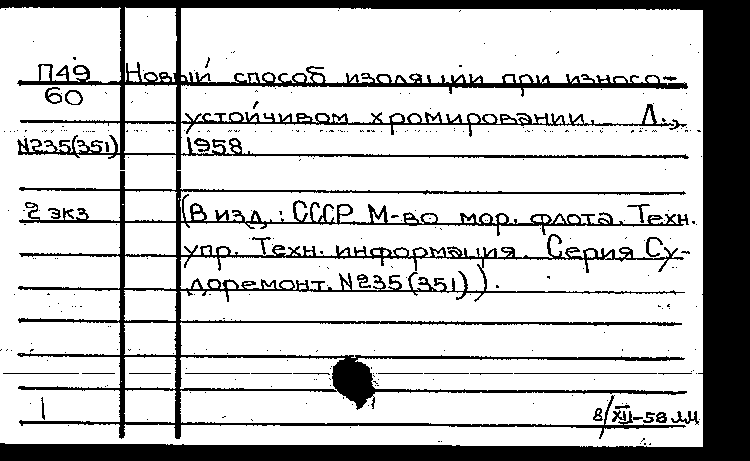 П49 Новый способ изоляции при износо-
60
устойчивом хромировании. Л.,
N235(351) 1958.
2 экз (В изд.: СССР М-во мор. флота. Техн.
упр. Техн. информация. Серия Су-
доремонт. N235(351)).
1
8/XII-58 лм